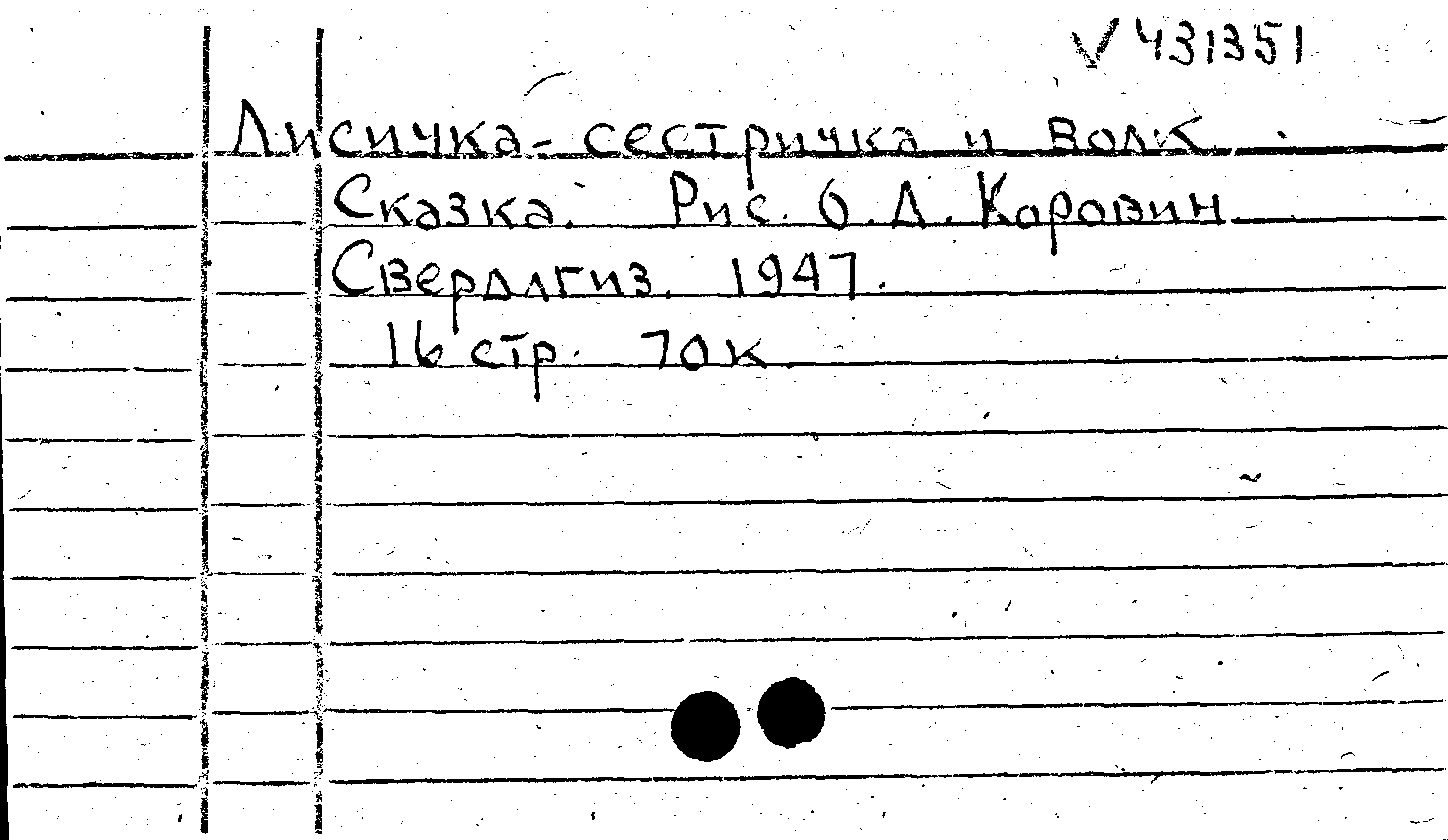 V 431351
Лисичка-сестричка и волк.
Сказка. Рис. О.Д. Коровин
Свердлгиз. 1947.
16 стр. 70к.